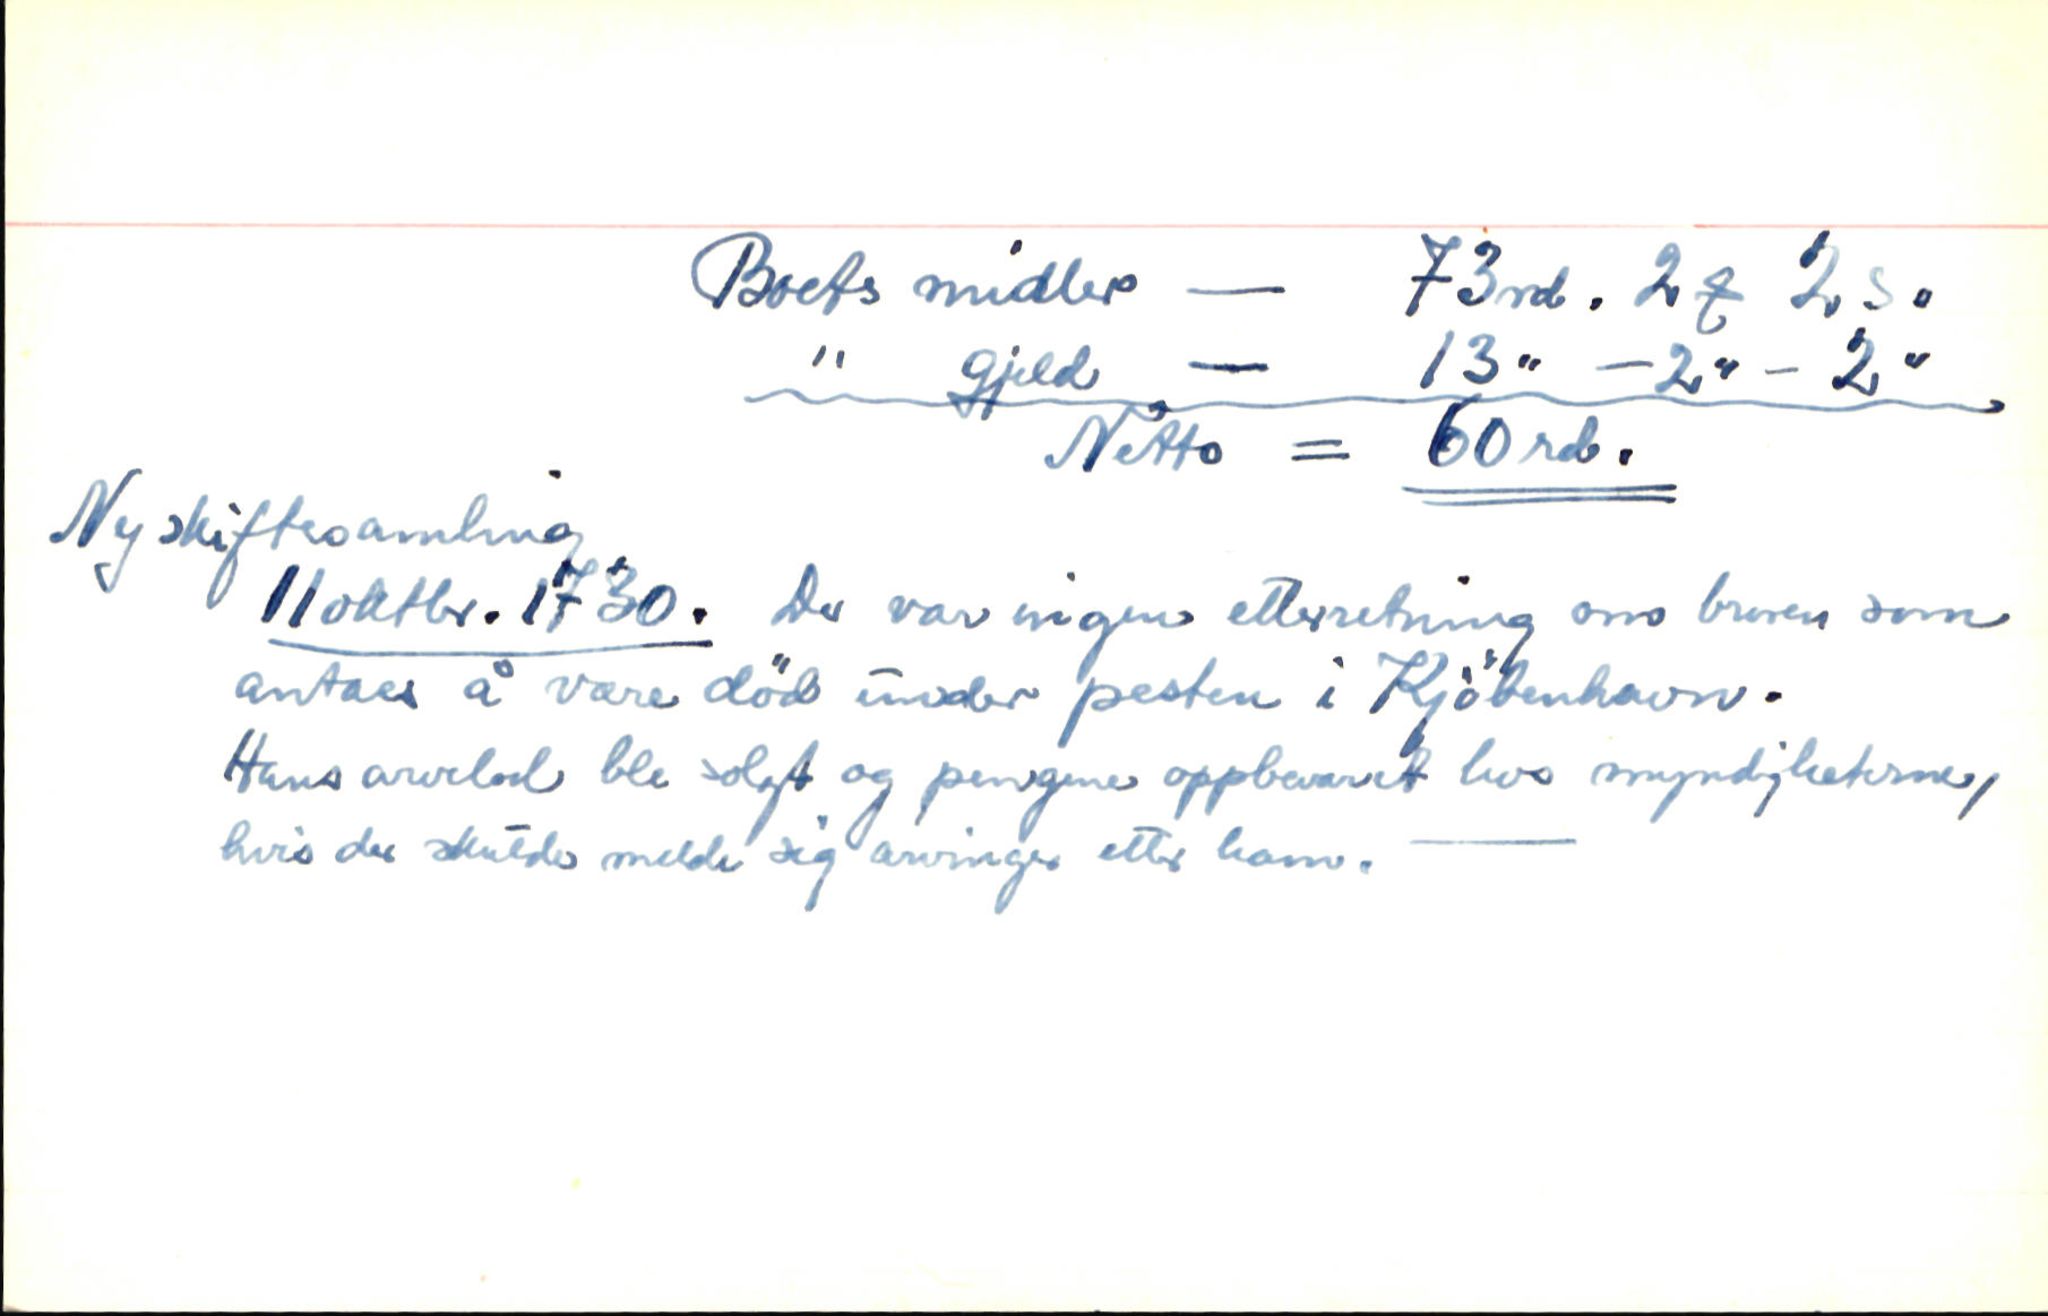 Boets midler — 73 rd. 2 ₰ 2 s.
" Gjeld — 13 " — 2 " — 2 "
Netto = 60 rd.
Ny skiftesamling
11 oktbr. 1730. Der var ingen etterretning om som
antaes å være död under pesten i Kjöbenhavn.
Hans arvelod ble solgt og pengene oppbevaret hos myndigheterne,
hvis der skulde melde sig arvinger etter ham. —